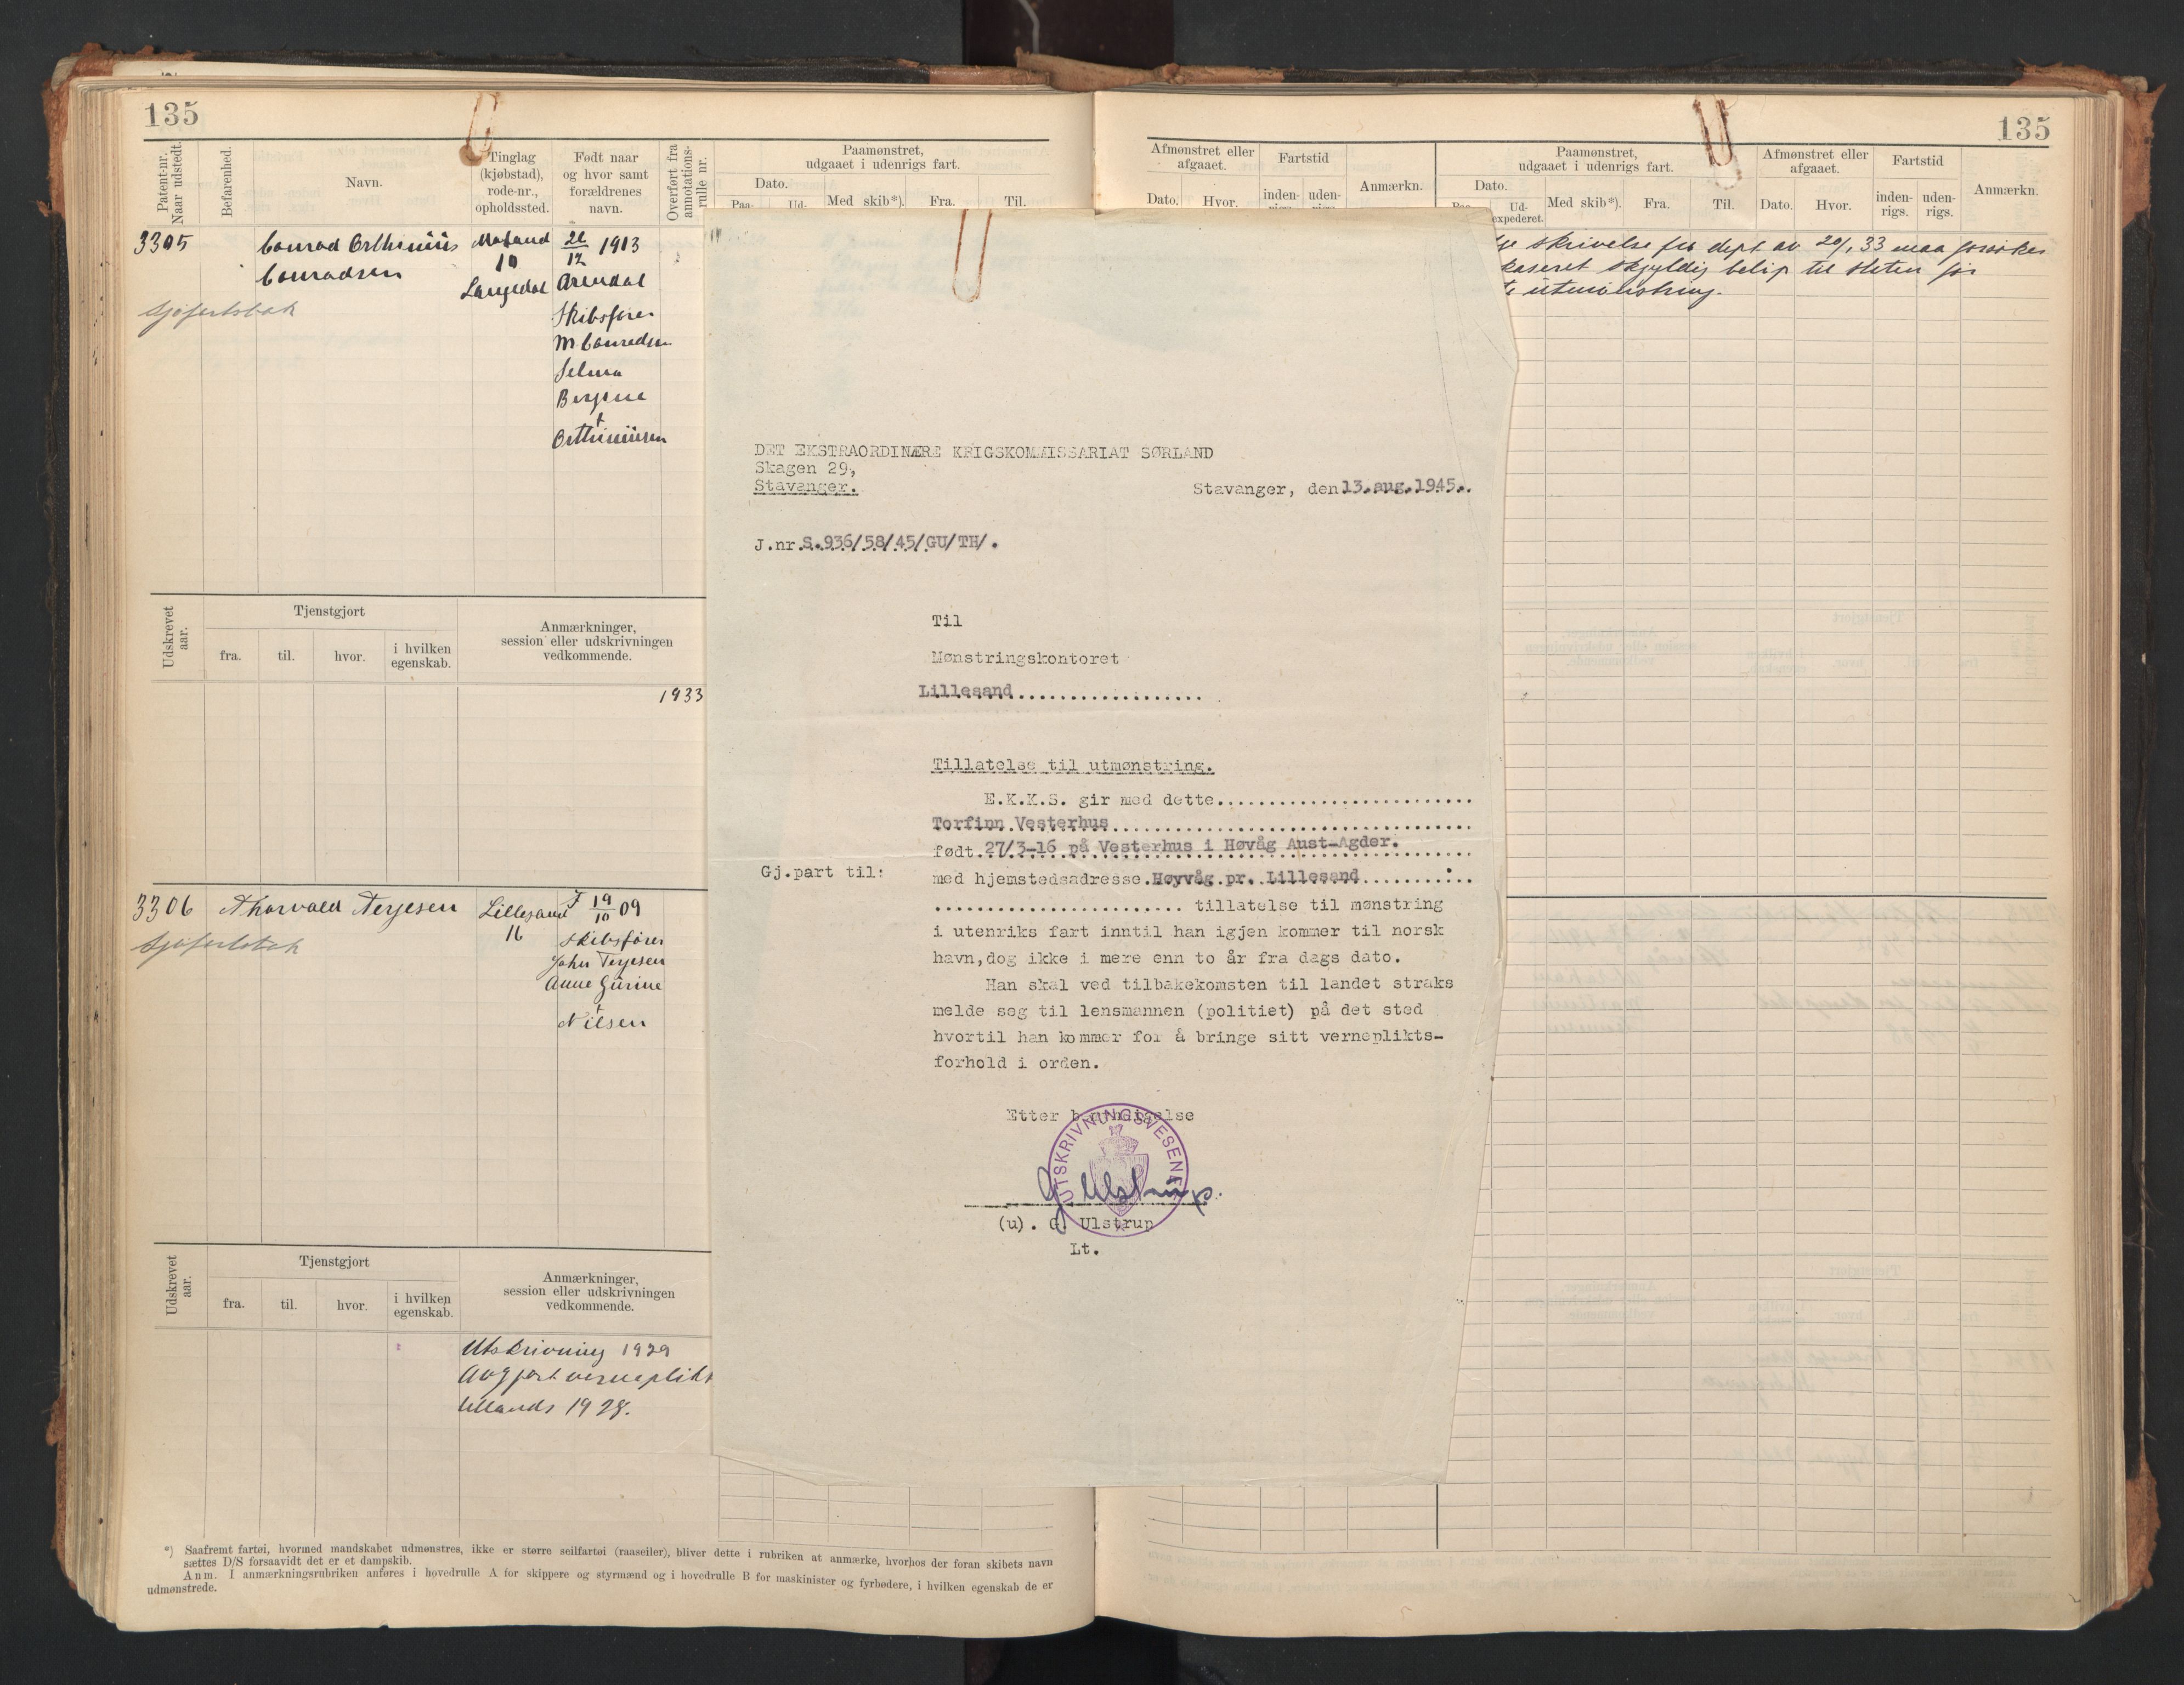 135
Patent-nr. Naar udstedt.
Befarenhed.
Navn.
Tinglag (kjøbstad), rode-nr., opholdssted.
Født naar og hvor samt forældrenes navn.
Overført fra annotations-rulle nr.
Paamønstret, udgaaet i udenrigs fart.
Dato.
Paa-
Ud-
Med skib*).
Fra.
Til.
3305
Conrad Orthenius
Conradsen
Sjøfartsbok
10
Langedal
1913
Arendal
Skibsfører
M. Conradsen
Selma
Orthenüsen
Udskrevet aar.
Tjenstgjort
fra.
til.
hvor.
i hvilken egenskab.
Anmærkninger, session eller udskrivningen vedkommende.
1933
3306
Thorvald Terjesen
Sjøfartsbok
Lillesand
16
F 19/10 09
Skibsfører
John Terjesen
Anne Gurine
Nilsen
Udskrevet aar.
Tjenstgjort
fra.
til.
hvor.
i hvilken egenskab.
Anmærkninger, session eller udskrivningen vedkommende.
Utskrivning 1929
Avgjort verneplikt
1928.
*) Saafremt fartøi, hvormed mandskabet udmønstres, ikke er større seilfartøi (raaseiler), bliver dette i rubriken at anmærke, hvorhos der foran skibets navn
sættes D/S forsaavidt det er et dampskib.
Anm. I anmærkningsrubriken anføres i hovedrulle A for skippere og styrmænd og i hovedrulle B for maskinister og fyrbødere, i hvilken egenskab de er
udmønstrede.
DET EKSTRAORDINÆRE KRIGSKOMMISSARIAT SØRLAND
Skagen 29,
Stavanger.
Stavanger, den 13.aug.1945.
J.nr.S.936/58/45/GU/TH/.
Til
Mønstringskontoret
Lillesand
Tillatelse til utmønstring.
E.K.K.S. gir med dette
Torfinn Vesterhus
født 27/3-16 på Vesterhus i Høvåg Aust-Agder.
Gj.part til:
med hjemstedsadresse Høyvåg pr. Lillesand
tillatelse til mønstring
i utenriks fart inntil han igjen kommer til norsk
havn,dog ikke i mere enn to år fra dags dato.
Han skal ved tilbakekomsten til landet straks
melde seg til lensmannen (politiet) på det sted
hvortil han kommer for å bringe sitt vernepliktsforhold i orden.
Etter bemyndigelse
UTSKRIVNINGSVESENET
G Ulstrup
(u). G. Ulstrup
Lt.
135
Afmønstret eller afgaaet.
Dato.
Hvor.
Fartstid
inden-
uden-
Anmærkn.
Paamønstret, udgaaet i udenrigs fart.
Dato.
Ud-
expederet.
Med skib*).
Fra.
Til.
Afmønstret eller afgaaet.
Dato.
Hvor.
Fartstid
inden-rigs.
uden-rigs.
Anmærkn.
skrivelse fra dept av 20/1 33 maa
skyldig beløp til staten før
utmønstring.